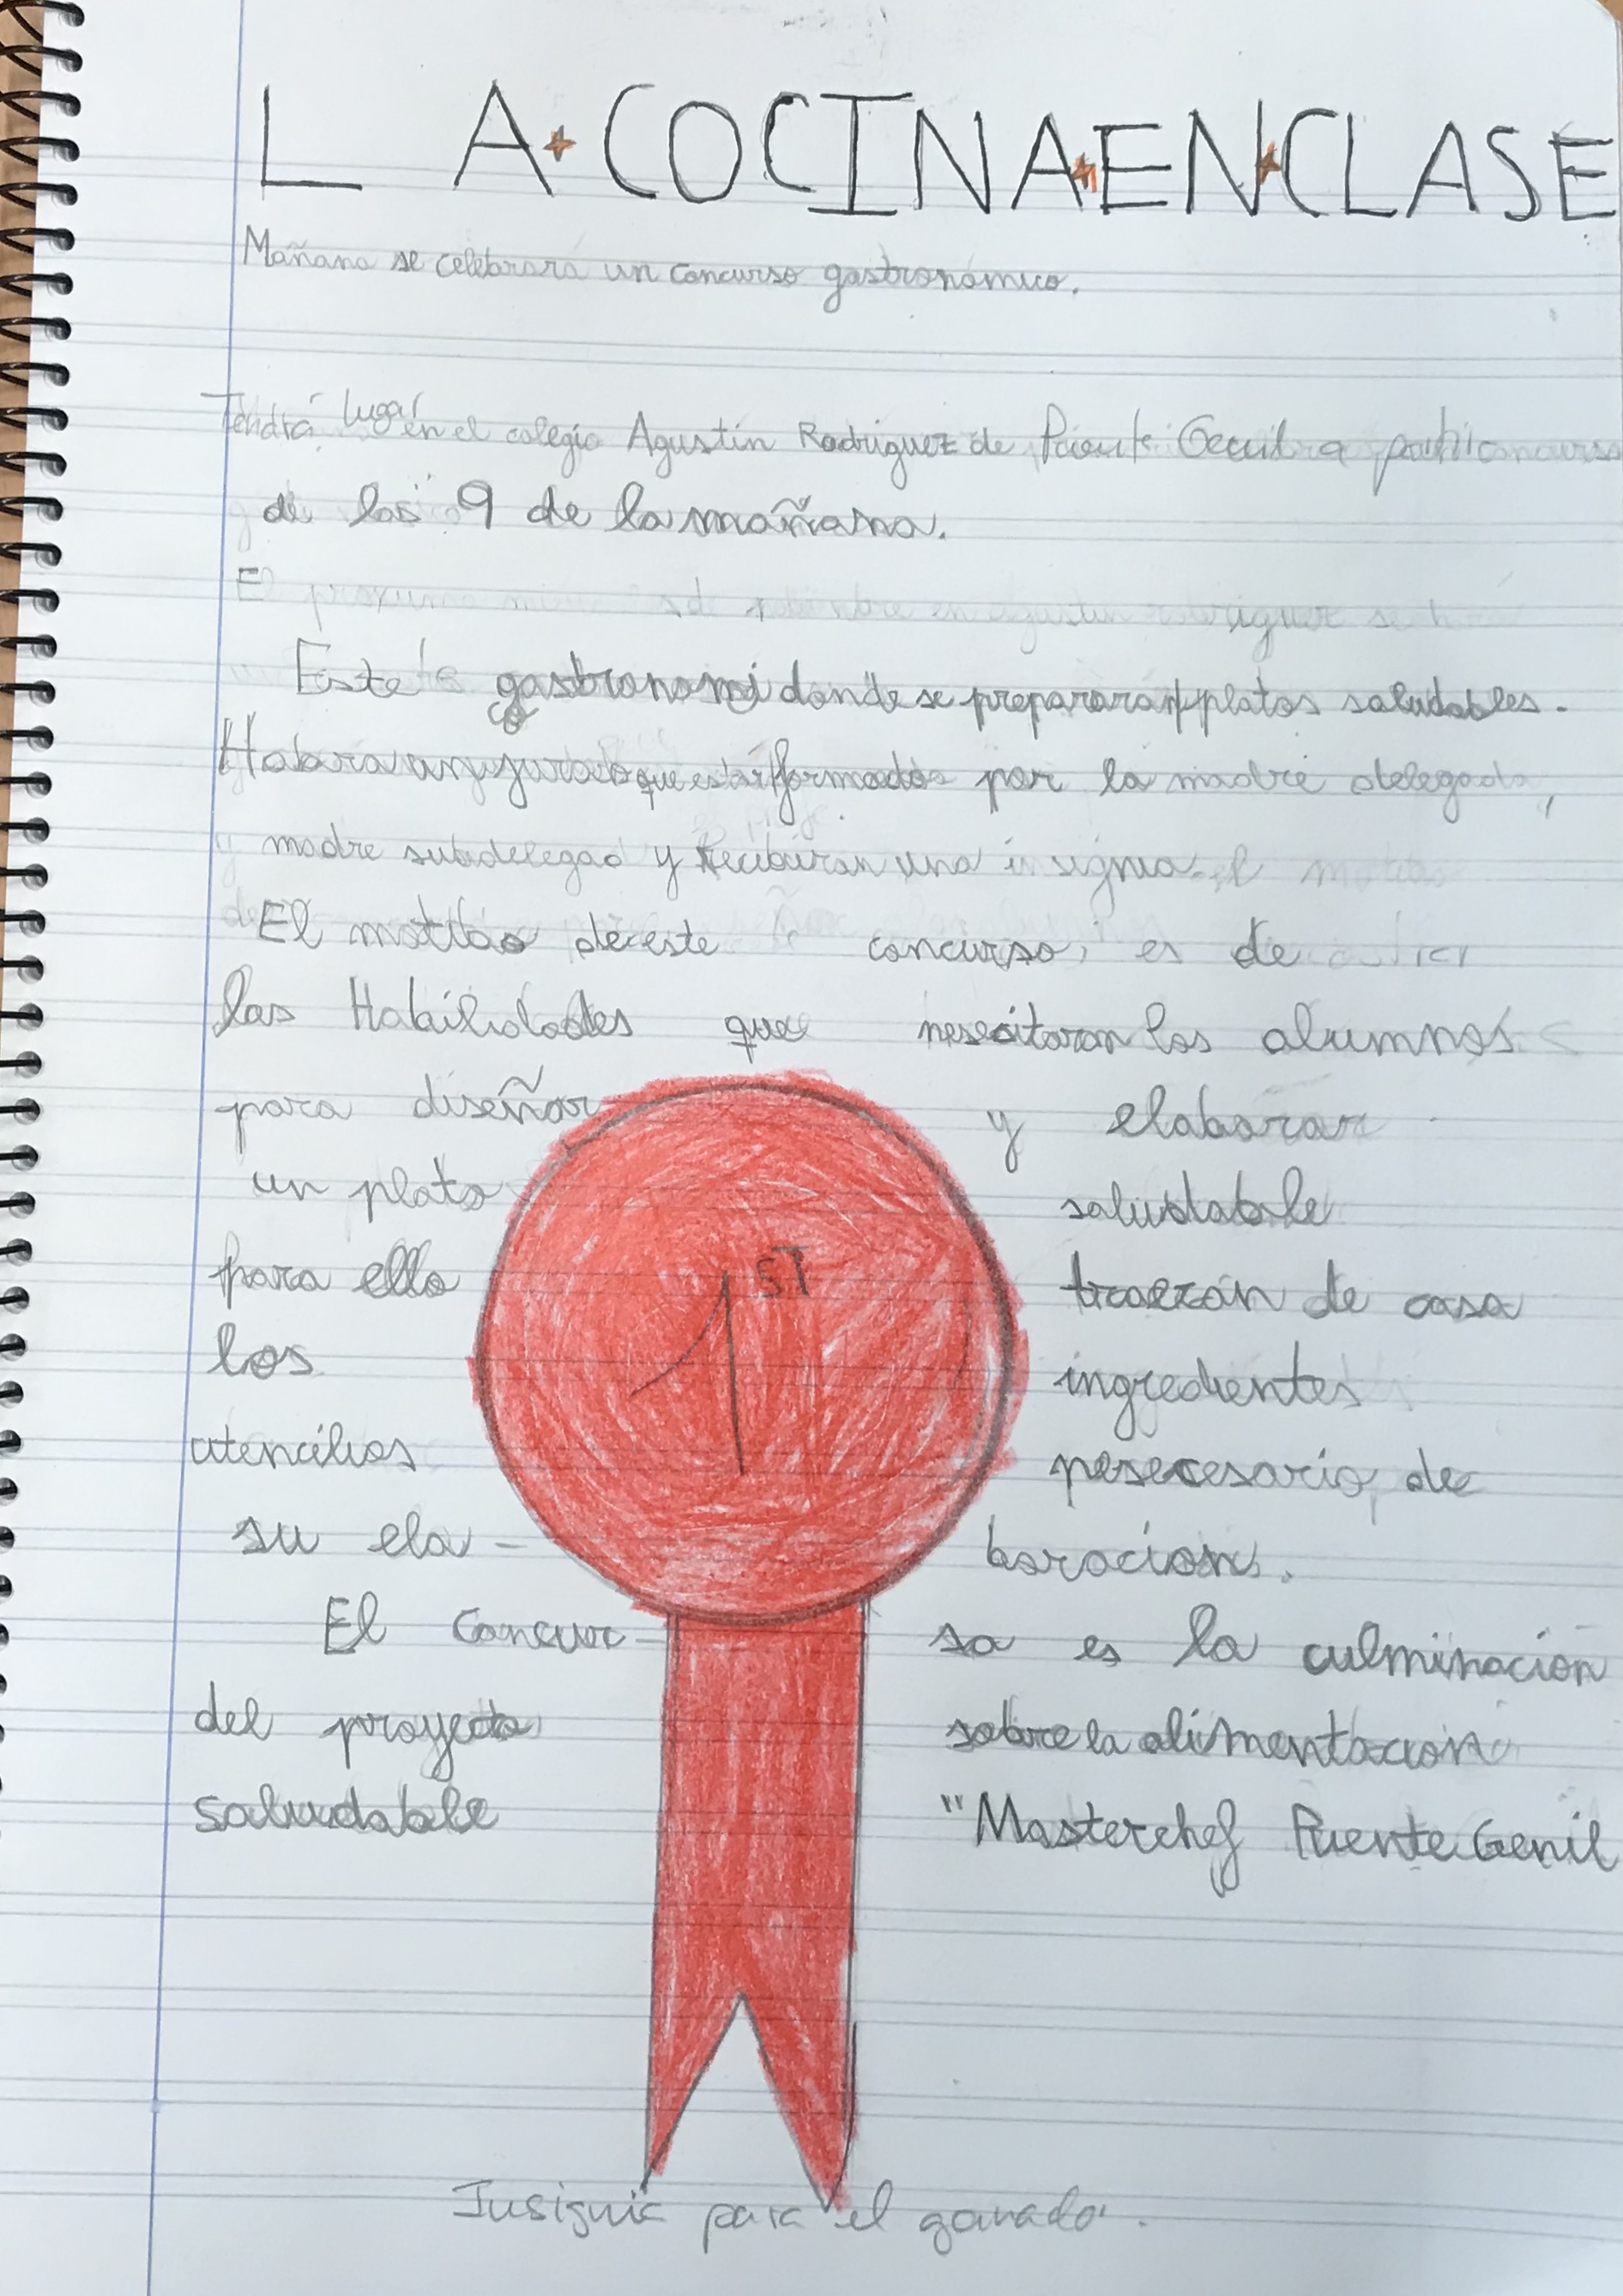 LA COCINA EN CLASE
Mañana se celebrará un concurso gastronómico.
Tendrá lugar en el colegio Agustín Rodríguez de Puente a
de las 9 de la mañana.
El
Este gastronomico donde se prepararan platos saludables.
Habra un jurado que estar formado por la madre delegada,
madre subdelegad y recibiran una insignia.
El de este concurso, es de
las Habilidades que nesecitaran los alumnos
para diseñar y elaborar
un plato saludable
para ello traerán de casa
los ingredientes
utencilios de
su ela- boracion.
El concur- so es la culminación
del proyecto sobre la alimentacion
saludable "Masterchef Puente Genil
1ST
Insignia para el ganador.